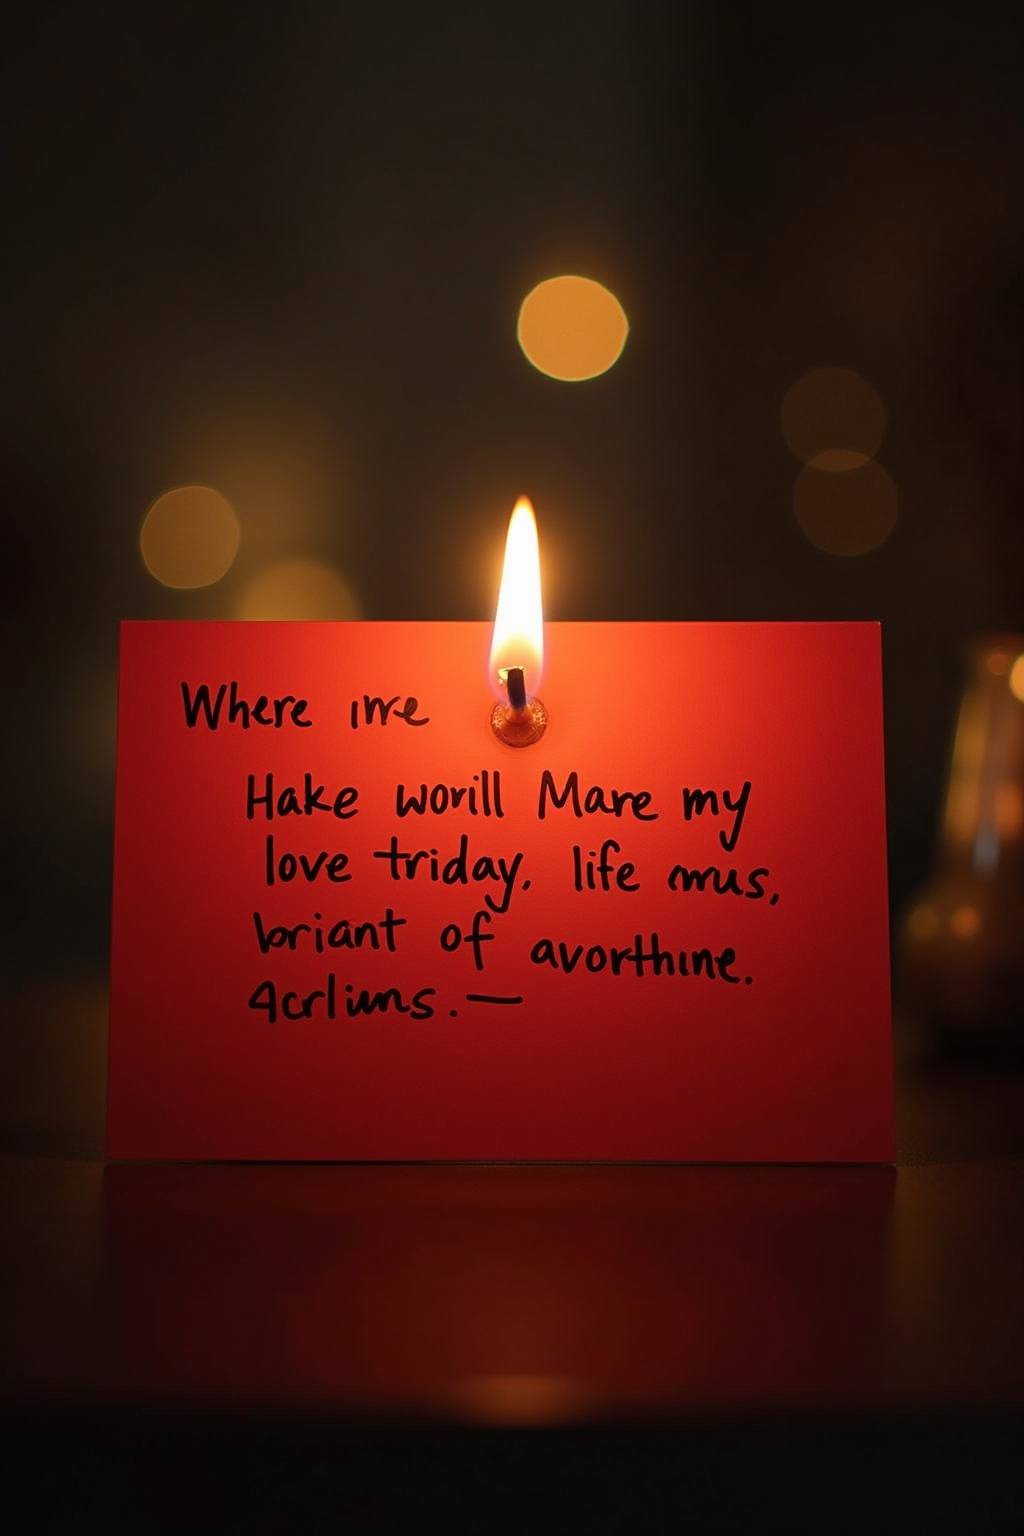 Where ire
Hake worill Mare my
love triday, life mus,
briant of avorthine.
4crlims. —